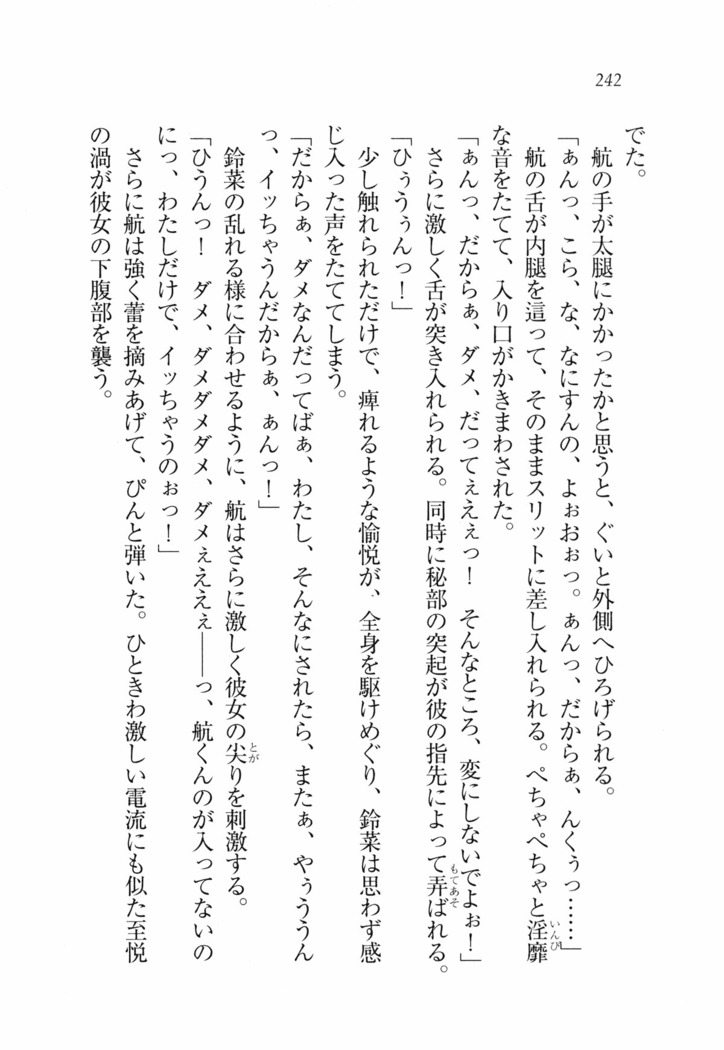 242
でた。
航の手が太腿にかかったかと思うと、ぐいと外側へひろげられる。
「ぁんっ、こら、な、なにすんの、よぉおぉっ。ぁんっ、だからぁ、んくぅっ……」
航の舌が内腿を這って、そのままスリットに差し入れられる。ぺちゃぺちゃと淫靡(いんび)
な音をたてて、入り口がかきまわされた。
「ぁんっ、だからぁ、ダメ、だってぇえぇっ！　そんなところ、変にしないでよぉ！」
さらに激しく舌が突き入れられる。同時に秘部の突起が彼の指先によって弄(もてあそ)ばれる。
「ひぅうぅんっ！」
少し触れられただけで、痺れるような愉悦が、全身を駆けめぐり、鈴菜は思わず感
じ入った声をたててしまう。
「だからぁ、ダメなんだってばぁ、わたし、そんなにされたら、またぁ、やぅううん
っ、イッちゃうんだからぁ、ぁんっ！」
鈴菜の乱れる様に合わせるように、航はさらに激しく彼女の尖(とが)りを刺激する。
「ひうんっ！　ダメ、ダメダメダメ、ダメぇええぇ――っ、航くんのが入ってないの
にっ、わたしだけで、イッちゃうのぉっ！」
さらに航は強く蕾を摘みあげて、ぴんと弾いた。ひときわ激しい電流にも似た至悦
の渦が彼女の下腹部を襲う。